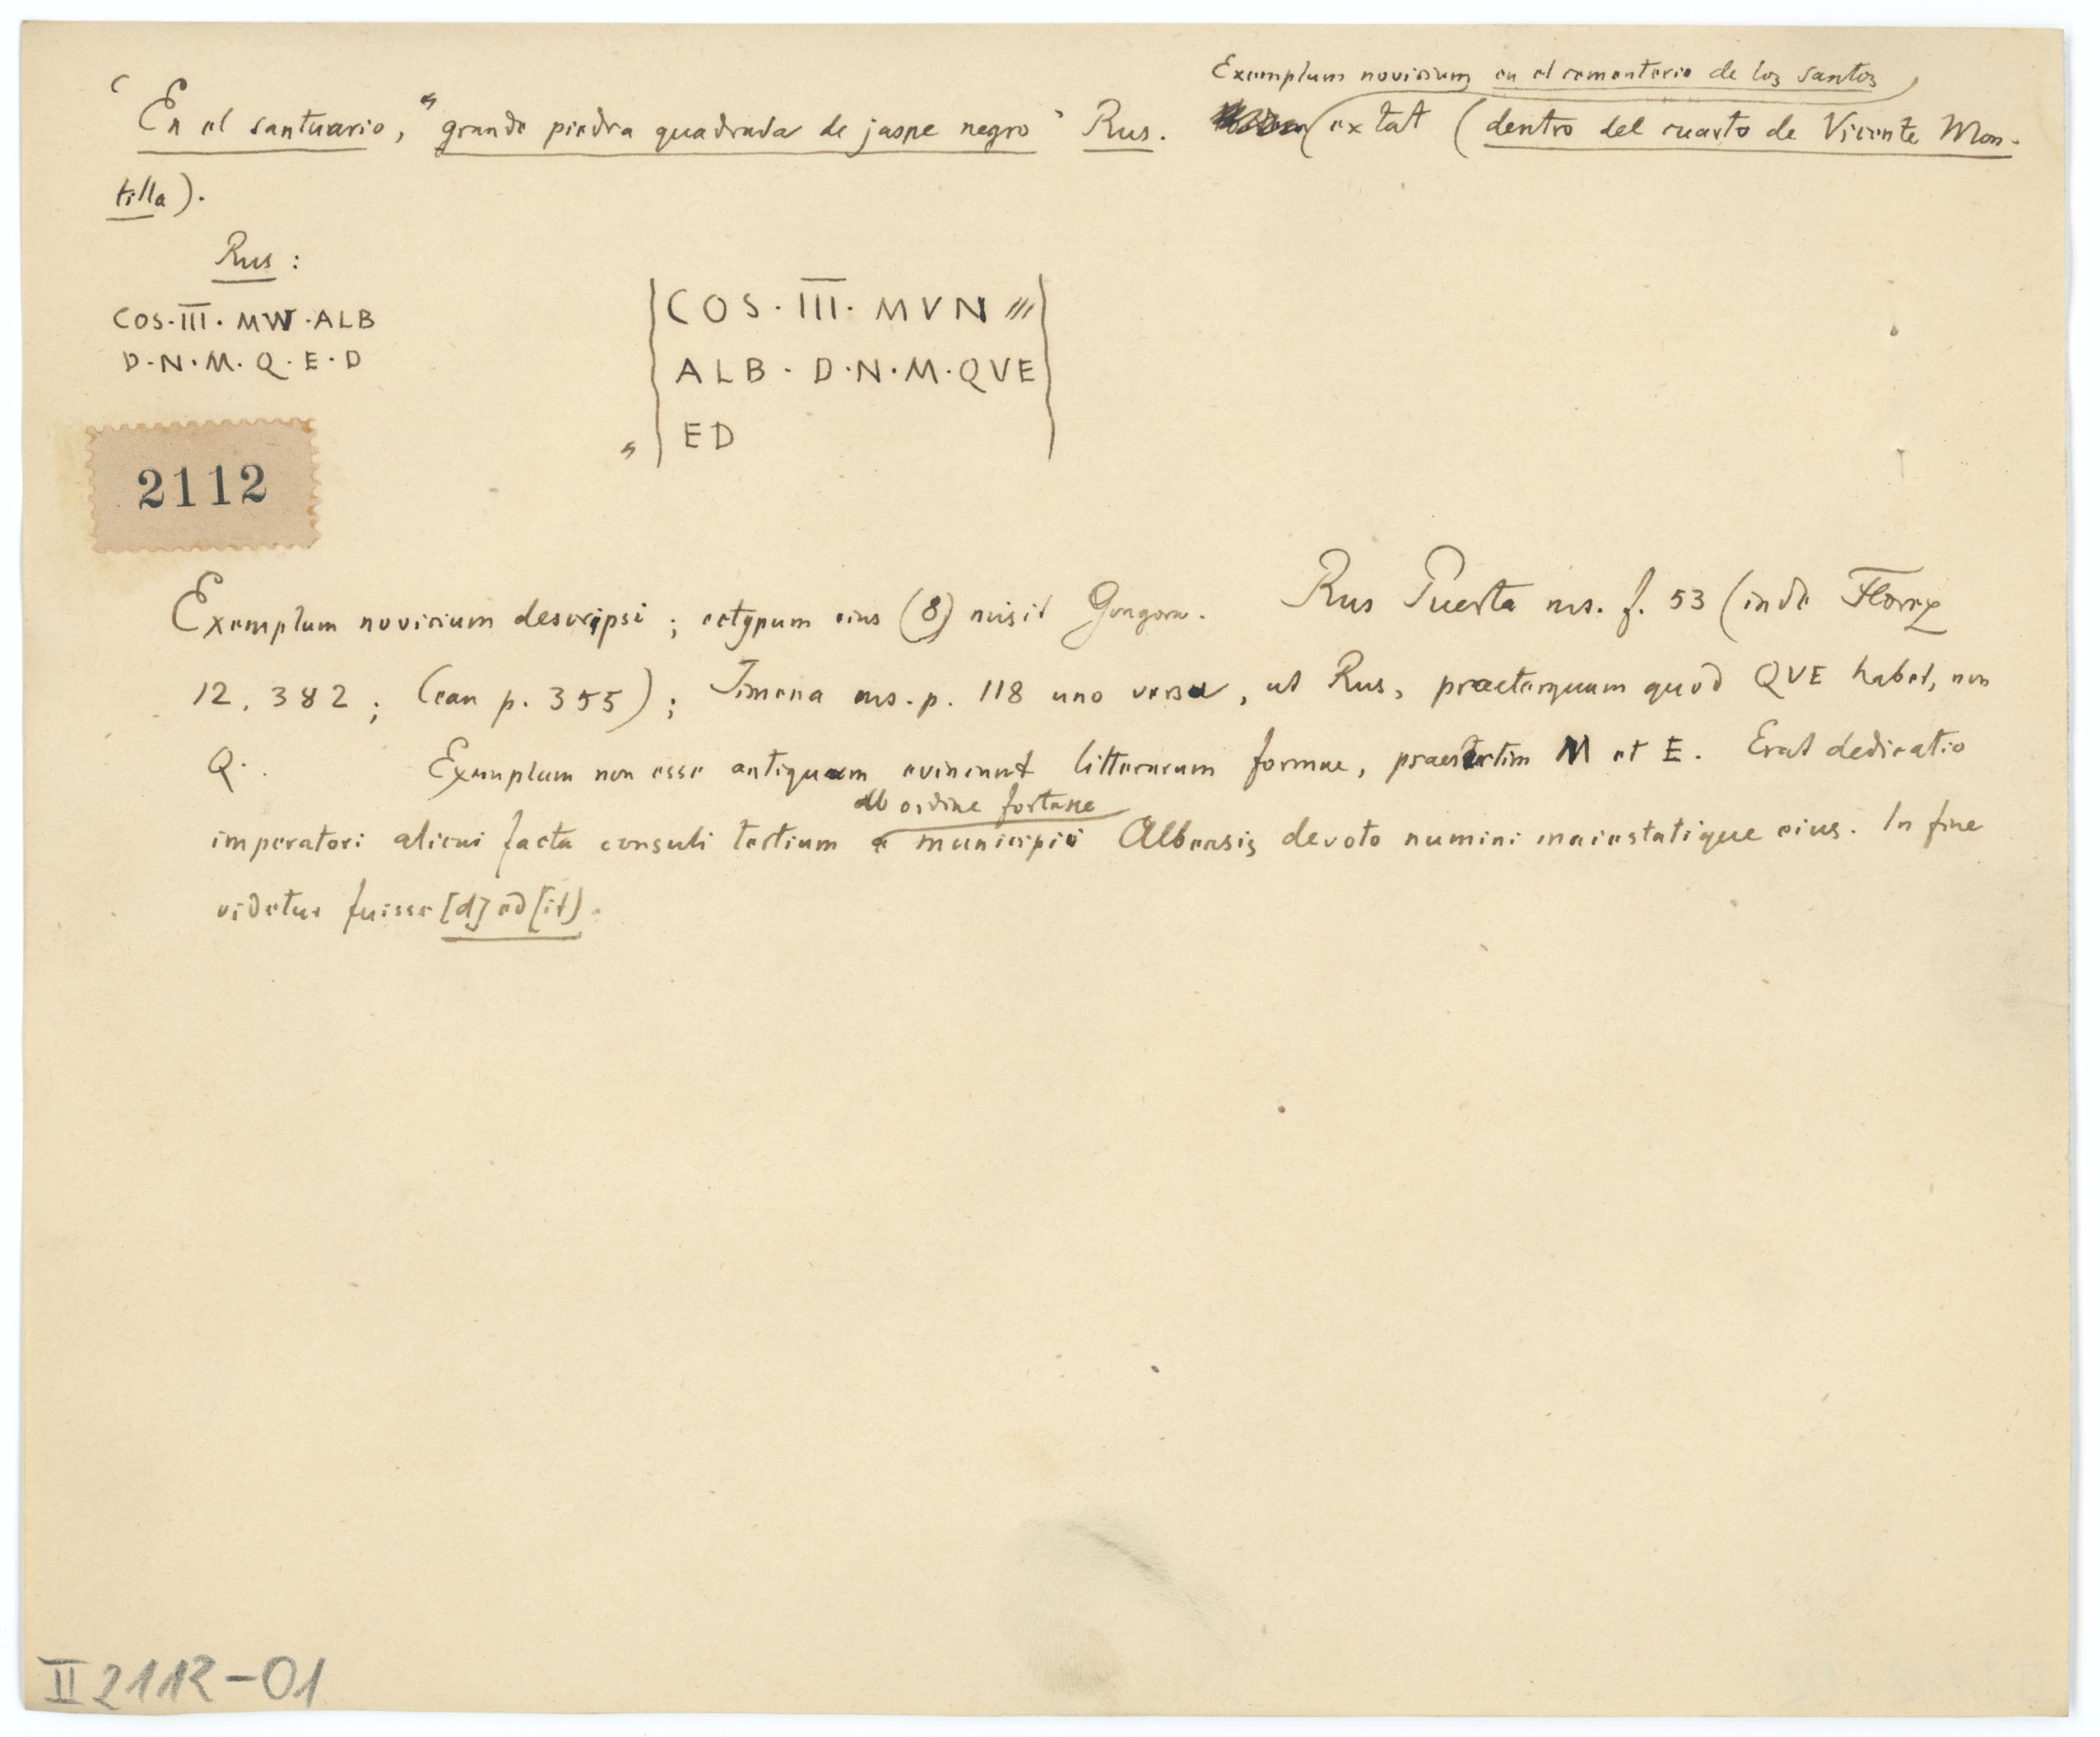 Exemplum novicium en el cementerio de los santos
‘En el santuario, “grande piedra quadrada de jaspe negro’ Rus. extat (dentro del cuarto de Vicente Mon-
tilla).
Rus:
COS·III·MVV·ALB
D·N·M·Q·E·D
COS·III·MVN///
ALB·D·N·M·QVE
„ ED
2112
Exemplum novicium descripsi; ectypum eius (8) misit Gongora. Rus Puerta ms. f. 53 (inde Florez
12, 382; Cean p. 355); Jimena ms. p. 118 uno versu, ut Rus, praeterquam quod QVE habet, non
Q. Exemplum non esse antiquum evincunt litterarum formae, praesertim M et E. Erat dedicatio
ab ordine fortasse
imperatori alicui facta consuli tertium a municipii Albensis devoto numini maiestatique eius. In fine
videtur fuisse [d]ed[it].
II 2112-01